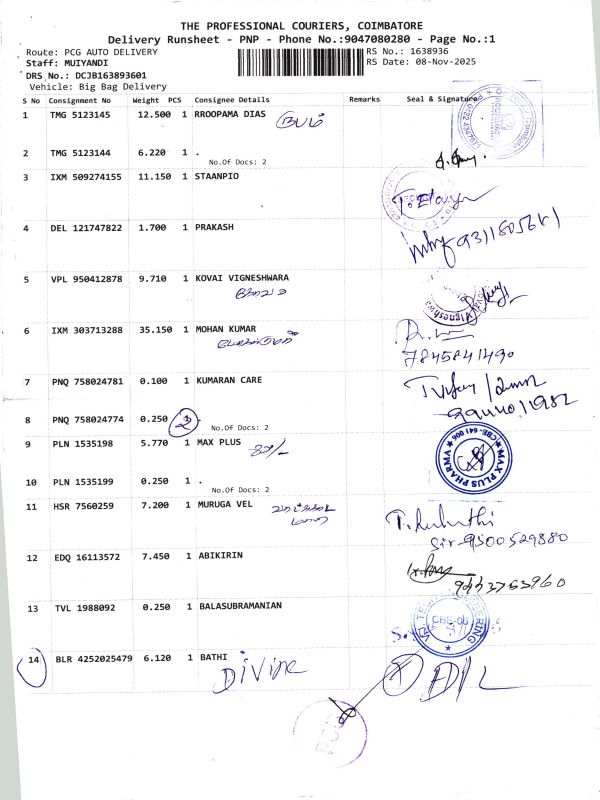 THE PROFESSIONAL COURIERS, COIMBATORE
Delivery Runsheet - PNP - Phone No.:9047080280 - Page No.:1
Route: PCG AUTO DELIVERY RS No.: 1638936
Staff: MUIYANDI RS Date: 08-Nov-2025
DRS No.: DCJB163893601
Vehicle: Big Bag Delivery
S No Consignment No Weight PCS Consignee Details Remarks Seal & Signature
1 TMG 5123145 12.500 1 RROOPAMA DIAS
2 TMG 5123144 6.220 1 .
No.Of Docs: 2
3 IXM 509274155 11.150 1 STAANPIO
4 DEL 121747822 1.700 1 PRAKASH
5 VPL 950412878 9.710 1 KOVAI VIGNESHWARA
6 IXM 303713288 35.150 1 MOHAN KUMAR
7845841490
7 PNQ 758024781 0.100 1 KUMARAN CARE
8 PNQ 758024774 0.250 1
2 No.Of Docs: 2
9 PLN 1535198 5.770 1 MAX PLUS
MAX PLUS PHARMA CBE-641 006
10 PLN 1535199 0.250 1 .
No.Of Docs: 2
11 HSR 7560259 7.200 1 MURUGA VEL
9500529880
12 EDQ 16113572 7.450 1 ABIKIRIN
13 TVL 1988092 0.250 1 BALASUBRAMANIAN
14 BLR 4252025479 6.120 1 BATHI
Divine
PCG